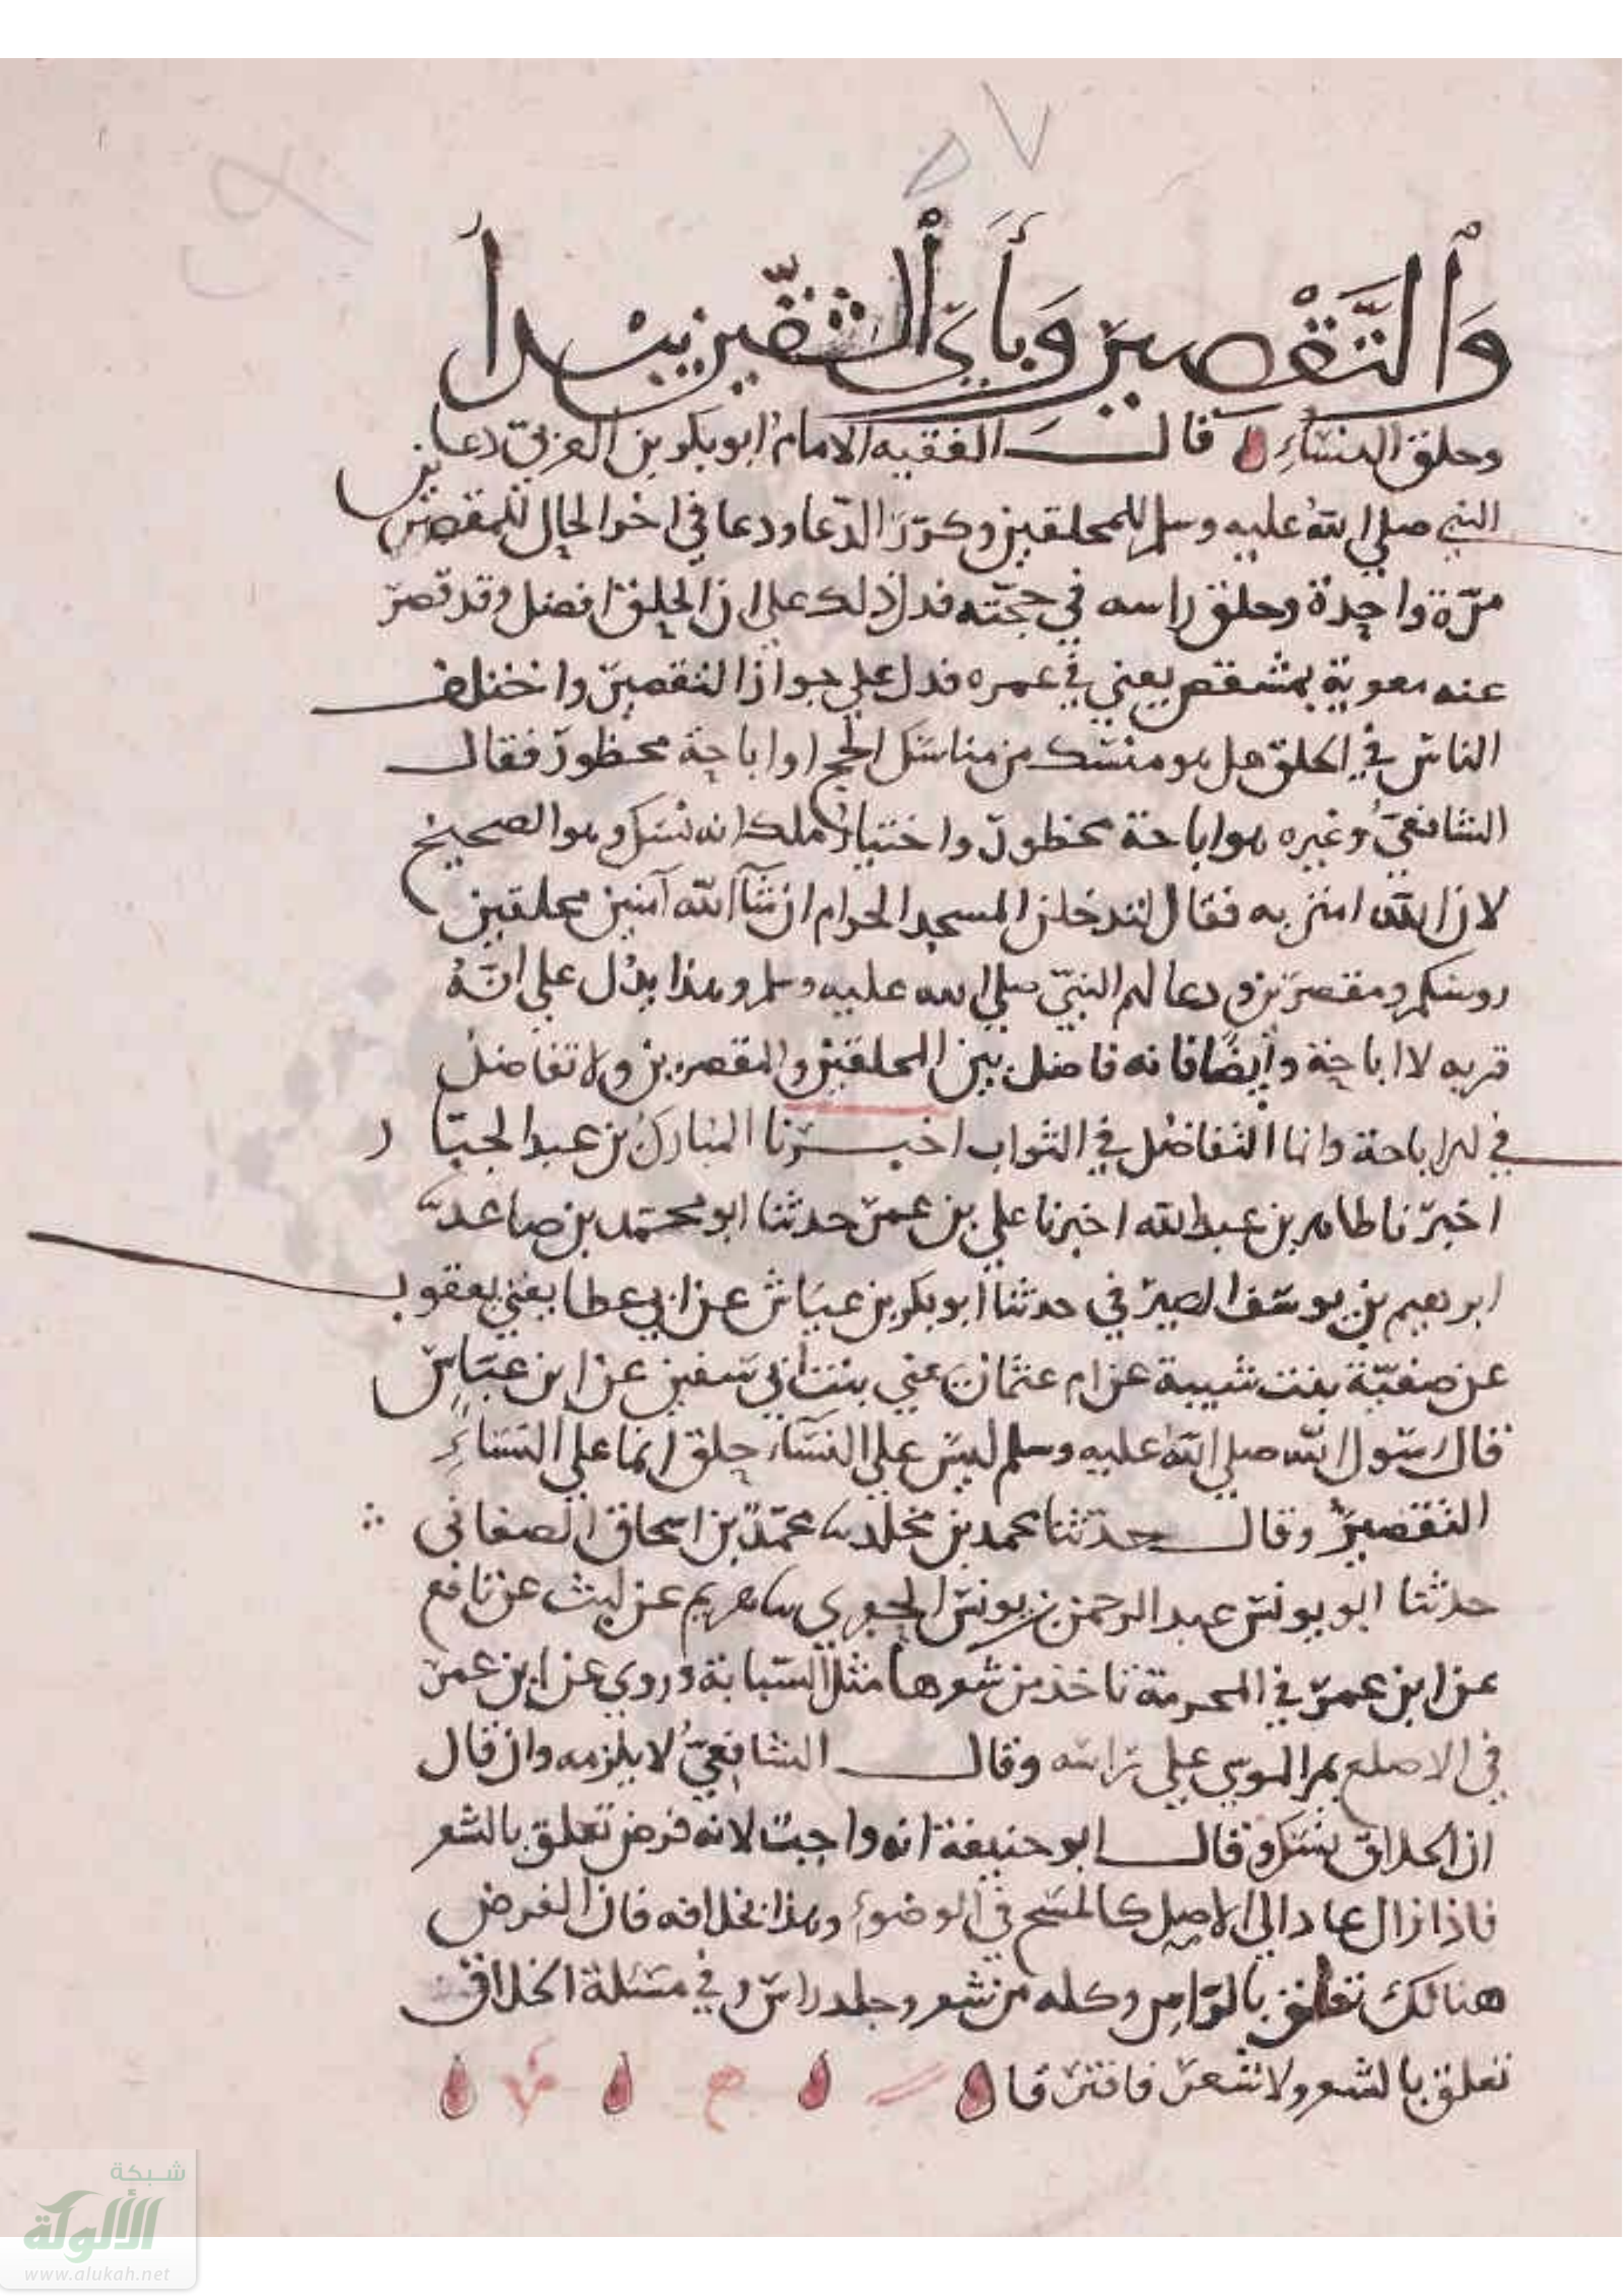 ٥٧
وَٱلتَّقْصِيرِ وَبِأَيِّ ٱلشِّقَّيْنِ يبْدأ
وحلق النساءِ قال الفقيه الامام ابو بكر بن العربيّ دعا
النبي صلى اللهُ عليه وسلم للمحلقين وكرّرَ الدّعا ودعا في اخر الحال للمقصرين
مرّة واحدة وحلق راسه في حجّته فدل ذلك على ان الحلق افضل وقد قصرّ
عنه معوية بمشقص يعني في عمره فدل على جواز التقصير واختلف
الناس في الحلق هل هو منسك من مناسك الحج او اباحة محظور فقال
الشافعيُّ وغيره هو اباحة محظور واختيار ملك انه نسك وهو الصحيح
لان الله امتن به فقال لتدخلن المسجد الحرام ان شآ الله آمنين محلقين
روسكم ومقصرين ودعا لهم النبيّ صلى الله عليه وسلم وهذا يدُل على انَّهُ
قربه لا اباحة وأيضًا فانه فاضل بين المحلقين والمقصرين ولا تفاضل
في الاباحة وانما التفاضُل في الثواب اخبرنا المبارك بن عبد الجبّار
اخبرنا طاهر بن عبد الله اخبرنا علي بن عمر حدثنا ابو محمّد بن صاعد
ابرهيم بن يوسف الصيرفي حدثنا ابو بكر بن عيّاش عن ابي عطا يعني يعقوب
عن صفيّة بنت شيبة عن ام عثمان يعني بنت ابي سفين عن ابن عبّاس
قال رسول الله صلى اللهُ عليه وسلم ليس على النسآء حلق انما على النساءِ
التقصيرُ وقال حدّثنا محمد بن مخلد محمّد بن اسحاق الصغاني
حدثنا ابو يونس عبد الرحمن بن يونس الجعرى هريم عن ليث عن نافع
عن ابن عمر في المحرمة تاخذ من شعرها مثل السّبابة وروي عن ابن عمر
في الاصلع يمر الموسى على راسه وقال الشافعيُّ لا يلزمه وان قال
ان الحلاق نسك وقال ابو حنيفة انه واجب لانه فرض تعلق بالشعر
فاذا زال عاد الى الاصل كالمسح في الوضوء وهذا بخلافه فان الفرض
هنالك تعلق بالراس وكله من شعر وجلد راس وفي مسئلة الحلاق
تعلق بالشعر ولا شعر فافترقا
شبكة
الألوكة
www.alukah.net